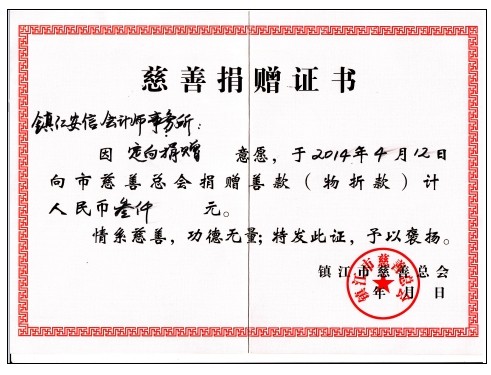 慈善捐赠证书
镇仁安信会计师事务所：
因 定向捐赠 意愿，于2014年4月12日
向市慈善总会捐赠善款（物折款）计
人民币叁仟 元。
情系慈善，功德无量；特发此证，予以褒扬。
镇江市慈善总会
年 月 日
镇江市慈善总会